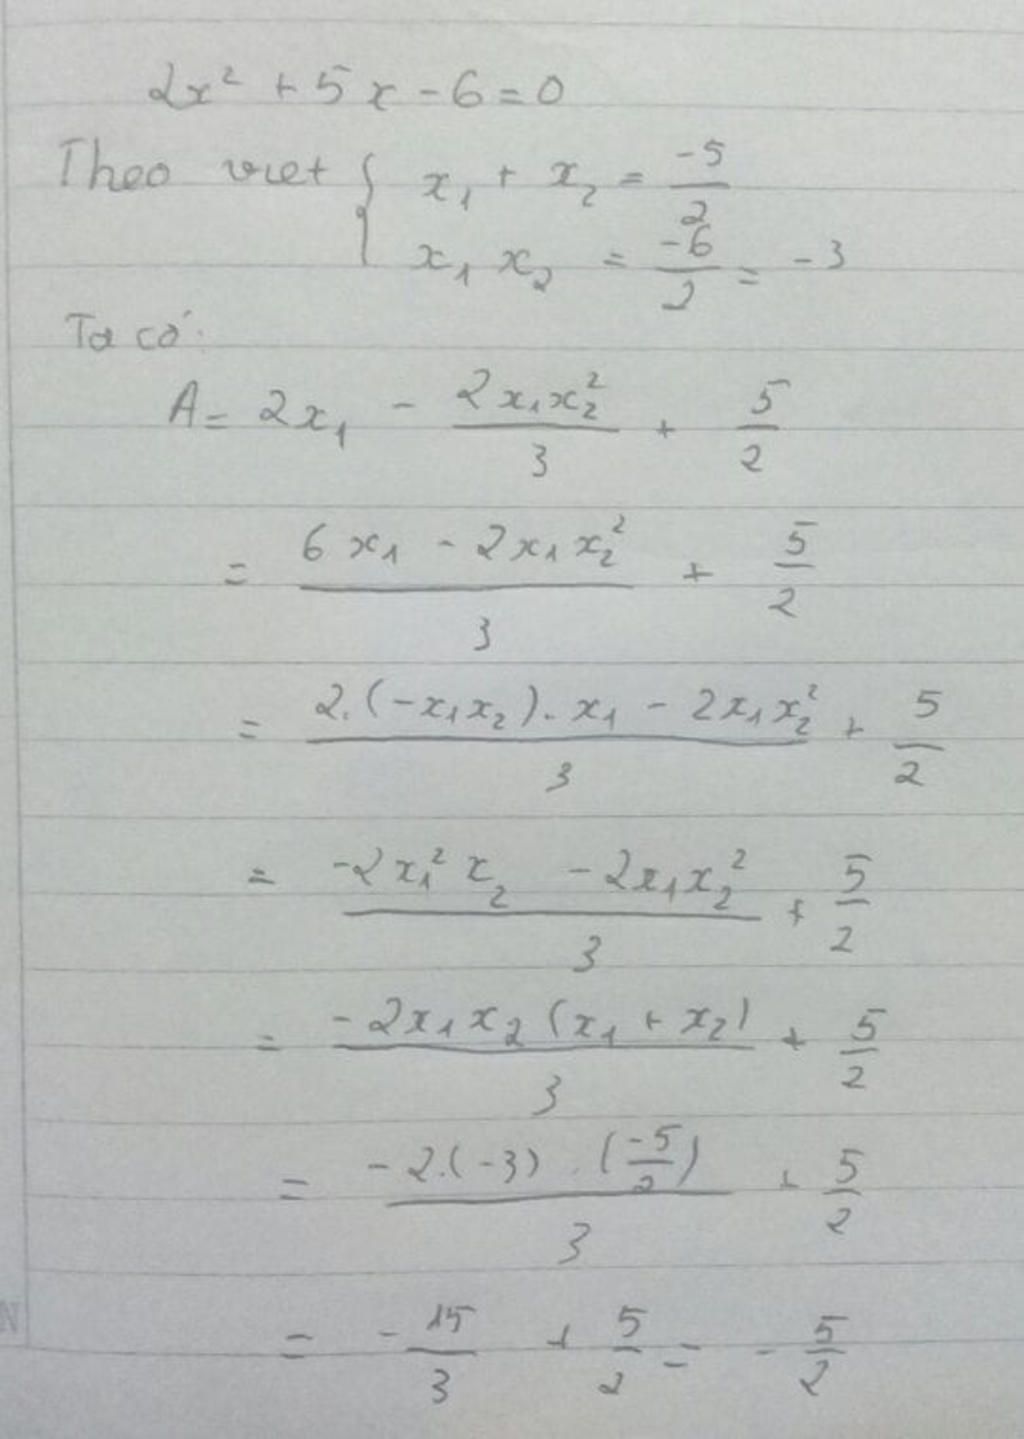 2x² + 5x - 6 = 0
Theo viet { x₁ + x₂ = -5/2
x₁ x₂ = -6/2 = -3
Ta có:
A = 2x₁ - 2x₁x₂²/3 + 5/2
= (6x₁ - 2x₁x₂²)/3 + 5/2
= (2.(-x₁x₂).x₁ - 2x₁x₂²)/3 + 5/2
= (-2x₁²x₂ - 2x₁x₂²)/3 + 5/2
= -2x₁x₂(x₁ + x₂)/3 + 5/2
= -2.(-3).(-5/2)/3 + 5/2
= -15/3 + 5/2 = -5/2
N